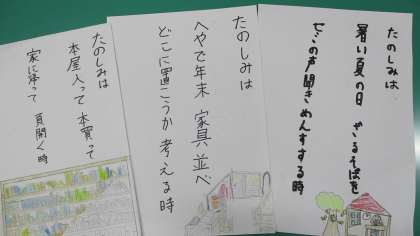 たのしみは
暑い夏の日 ざるそばを
の声聞きめんすする時
たのしみは
へやで年末 家具並べ
どこに置こうか 考える時
たのしみは
本屋入って 本買って
家に帰って 頁開く時